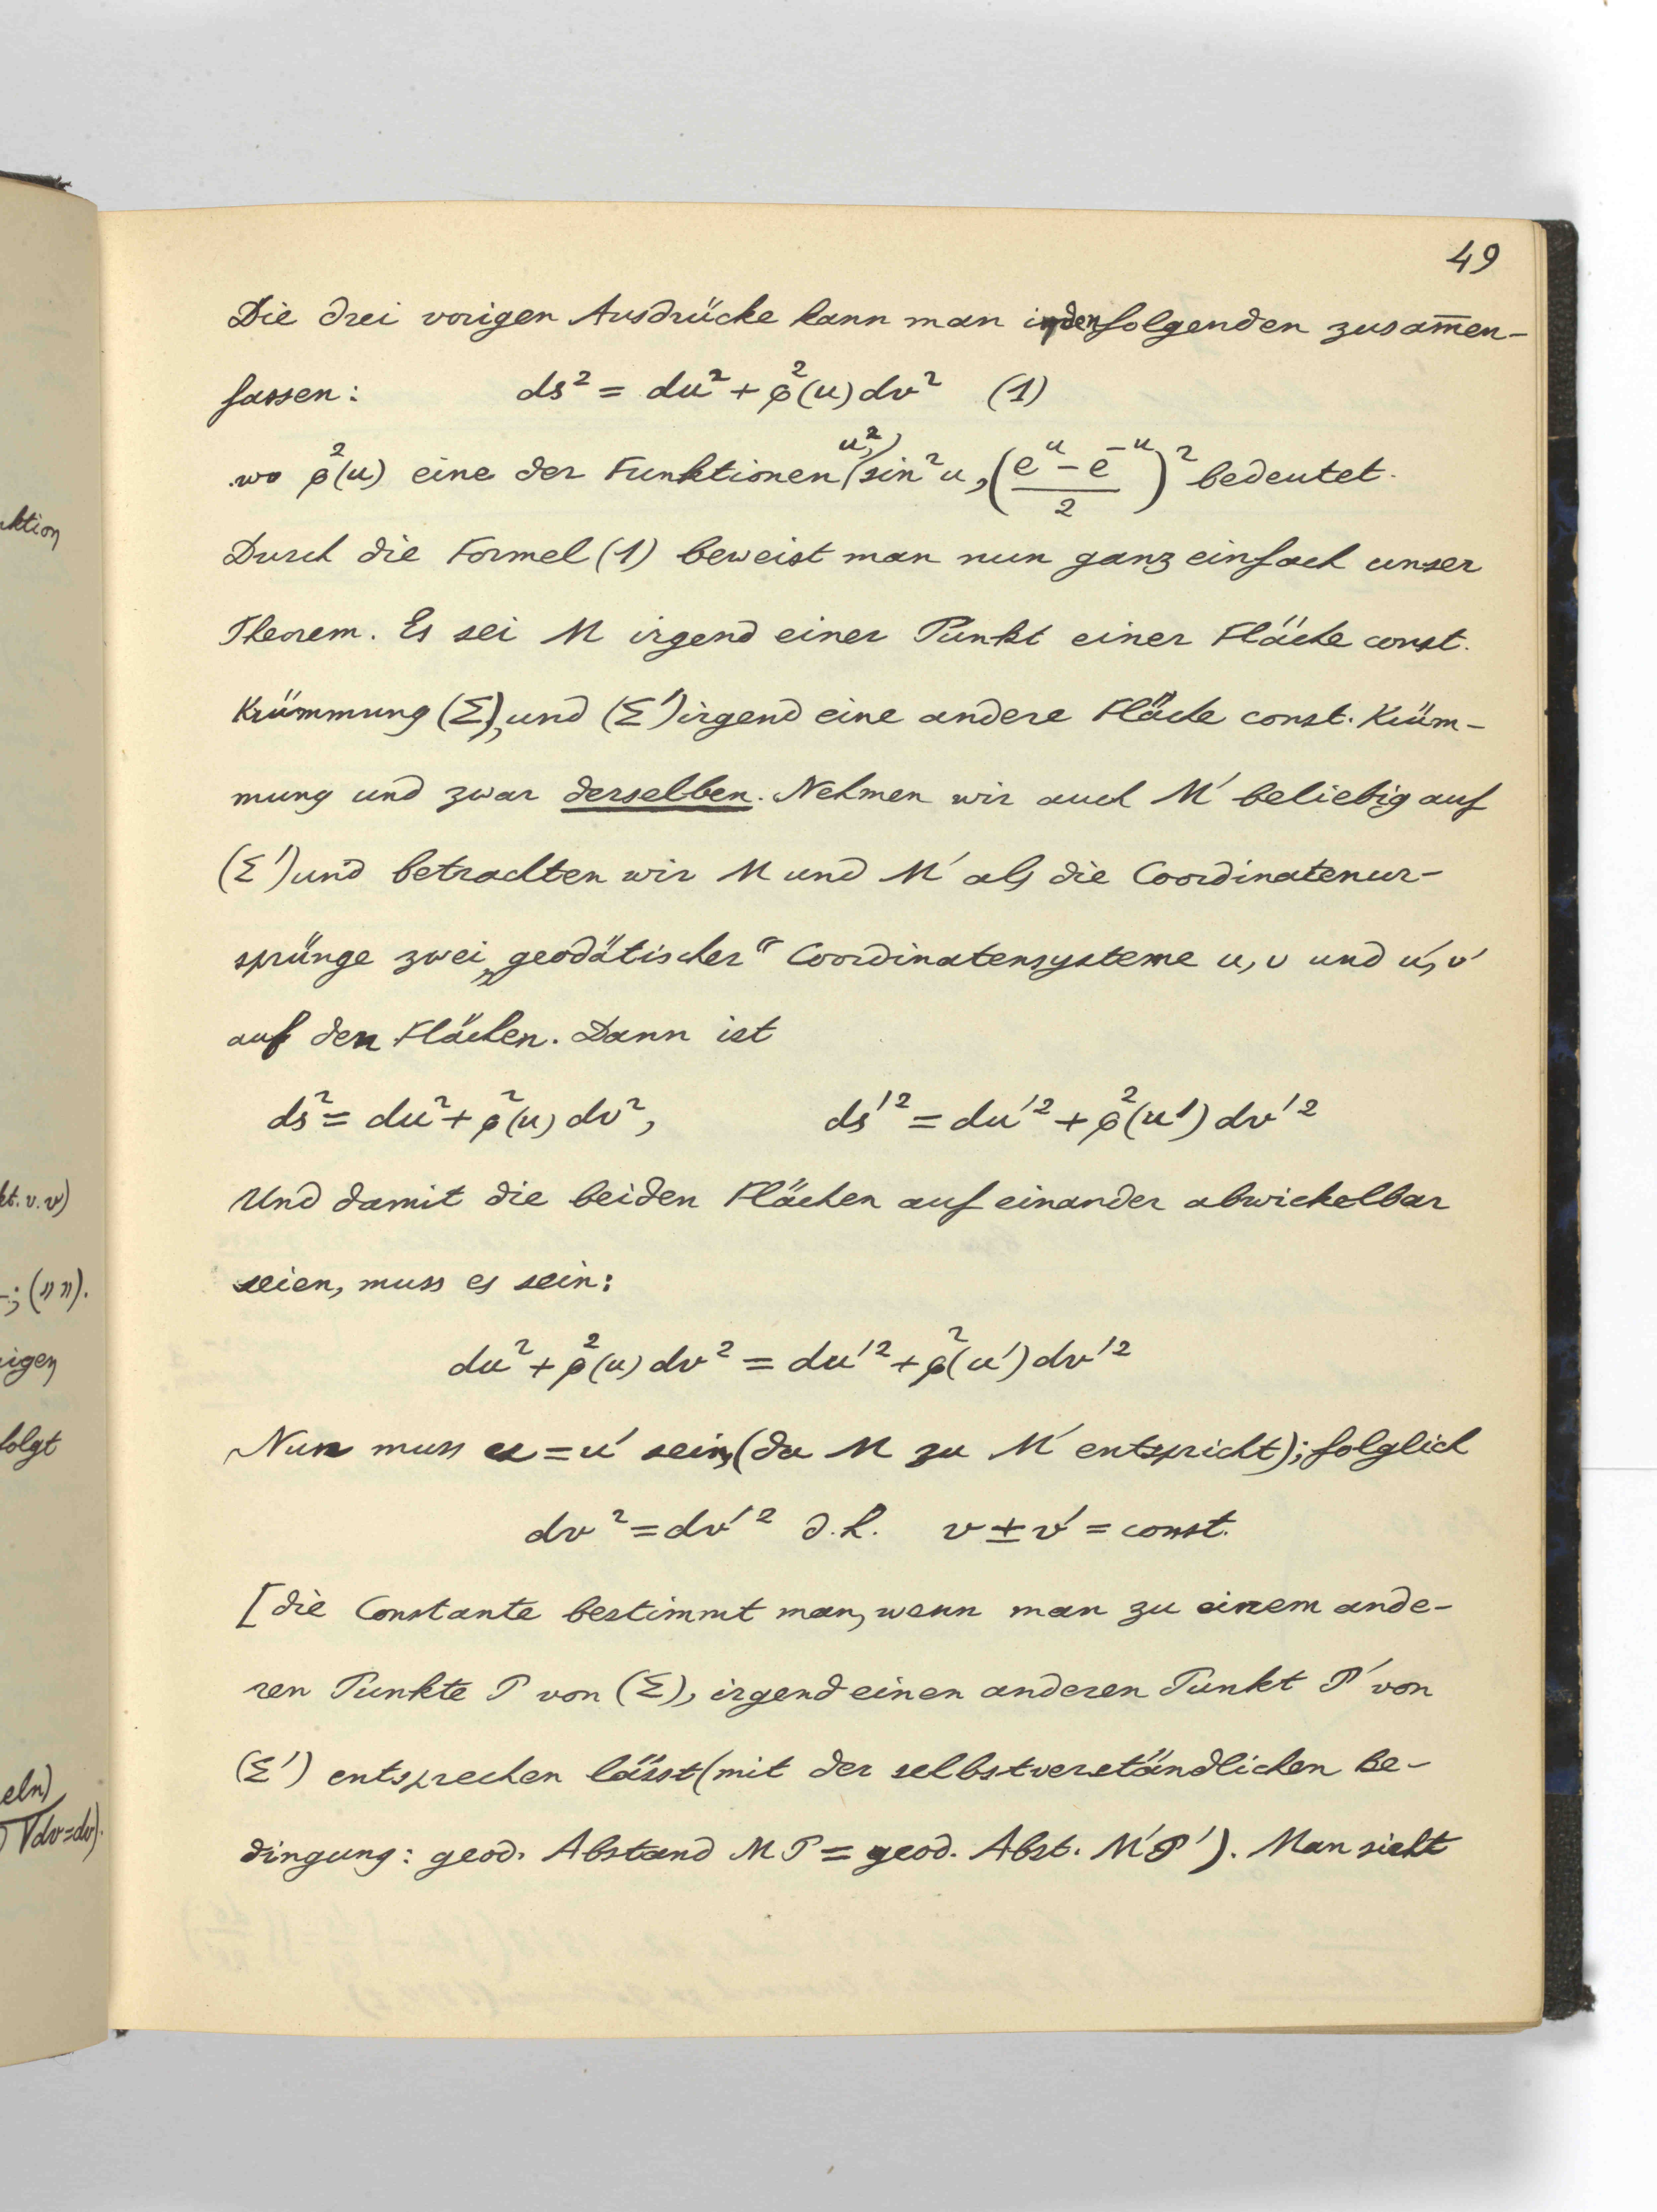 49
Die drei vorigen Ausdrücke kann man in den folgenden zusam̄en-
fassen: ds² = du² + φ²(u) dv² (1)
wo φ²(u) eine der Funktionen u², sin²u, ((eᵘ - e⁻ᵘ)/2)² bedeutet.
Durch die Formel (1) beweist man nun ganz einfach unser
Theorem. Es sei M irgend einer Punkt einer Fläche const.
Krümmung (Σ), und (Σ') irgend eine andere Fläche const. Krüm-
mung und zwar derselben. Nehmen wir auch M' beliebig auf
(Σ') und betrachten wir M und M' als die Coordinatenur-
sprünge zwei „geodätischer“ Coordinatensysteme u, v und u', v'
auf den Flächen. Dann ist
ds² = du² + φ²(u) dv², ds'² = du'² + φ²(u') dv'²
Und damit die beiden Flächen auf einander abwickelbar
seien, muss es sein:
du² + φ²(u) dv² = du'² + φ²(u') dv'²
Nun muss u = u' sein, (da M zu M' entspricht); folglich
dv² = dv'² d.h. v ± v' = const.
[die Constante bestimmt man, wenn man zu einem ande-
ren Punkte P von (Σ), irgend einen anderen Punkt P' von
(Σ') entsprechen lässt (mit der selbstverständlichen Be-
dingung: geod. Abstand MP = geod. Abst. M'P'). Man sieht